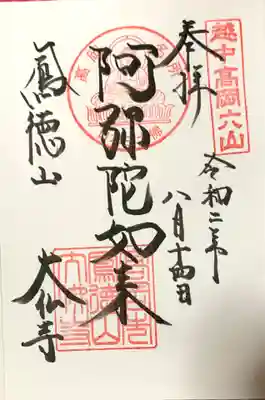 越中高岡六山
奉拝
令和二年
八月十四日
阿弥陀如来
鳳徳山
大仏寺